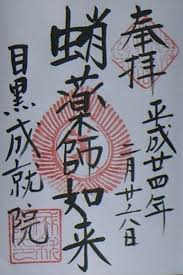 奉拝
平成廿四年
二月廿六日
蛸薬師如来
目黒成就院